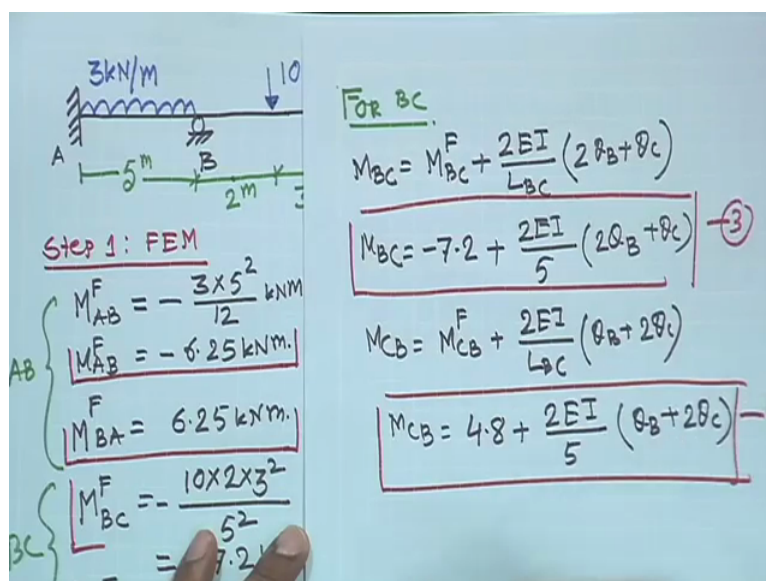 3kN/m
10
A
B
5m
2m
Step 1: FEM
M^F_AB = - 3×5²/12 kNM
M^F_AB = - 6.25 kNm.
AB
M^F_BA = 6.25 kNm.
M^F_BC = - 10×2×3²/5²
BC
= 7.2
FOR BC
M_BC = M^F_BC + 2EI/L_BC (2θ_B+θ_C)
M_BC = -7.2 + 2EI/5 (2θ_B+θ_C) - ③
M_CB = M^F_CB + 2EI/L_BC (θ_B+2θ_C)
M_CB = 4.8 + 2EI/5 (θ_B+2θ_C) -